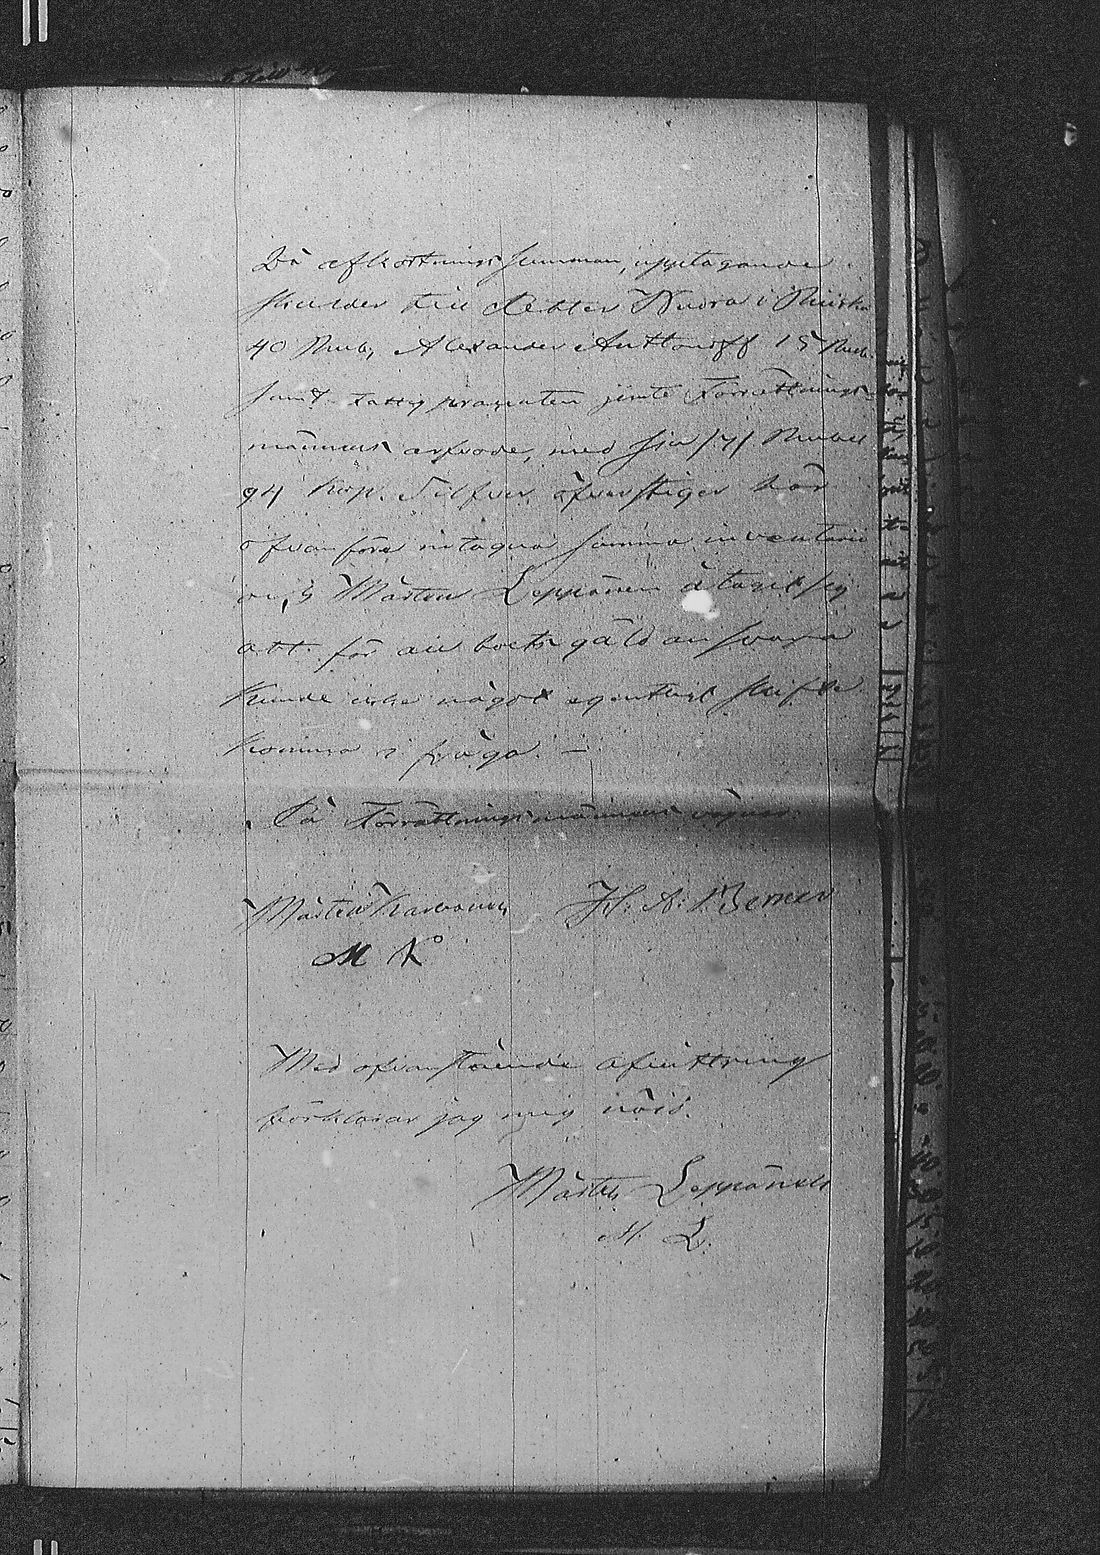 Då afkortnings summan, upptagande
skulder till Petter Kuosa i
40 Rub, Alexander Anttonoff 15 Rub
samt fattig procenten jemte Förrättnings
männens arfvode, med sju /7/ Rubel
94 Kop. Silfver öfverstiger här
ofvanföre intagna summa inventarii
och Mårten Leppänen åtagit sig
att för all boets gäld ansvara
kunde icke något egentligt skifte
komma i fråga. —
På Förrättningsmännens vägnar.
Mårten Karvonen H. A. Berner
M K
Med ofvanstående afvittring
förklarar jag mig nöjd.
Mårten Leppänen
M. L.